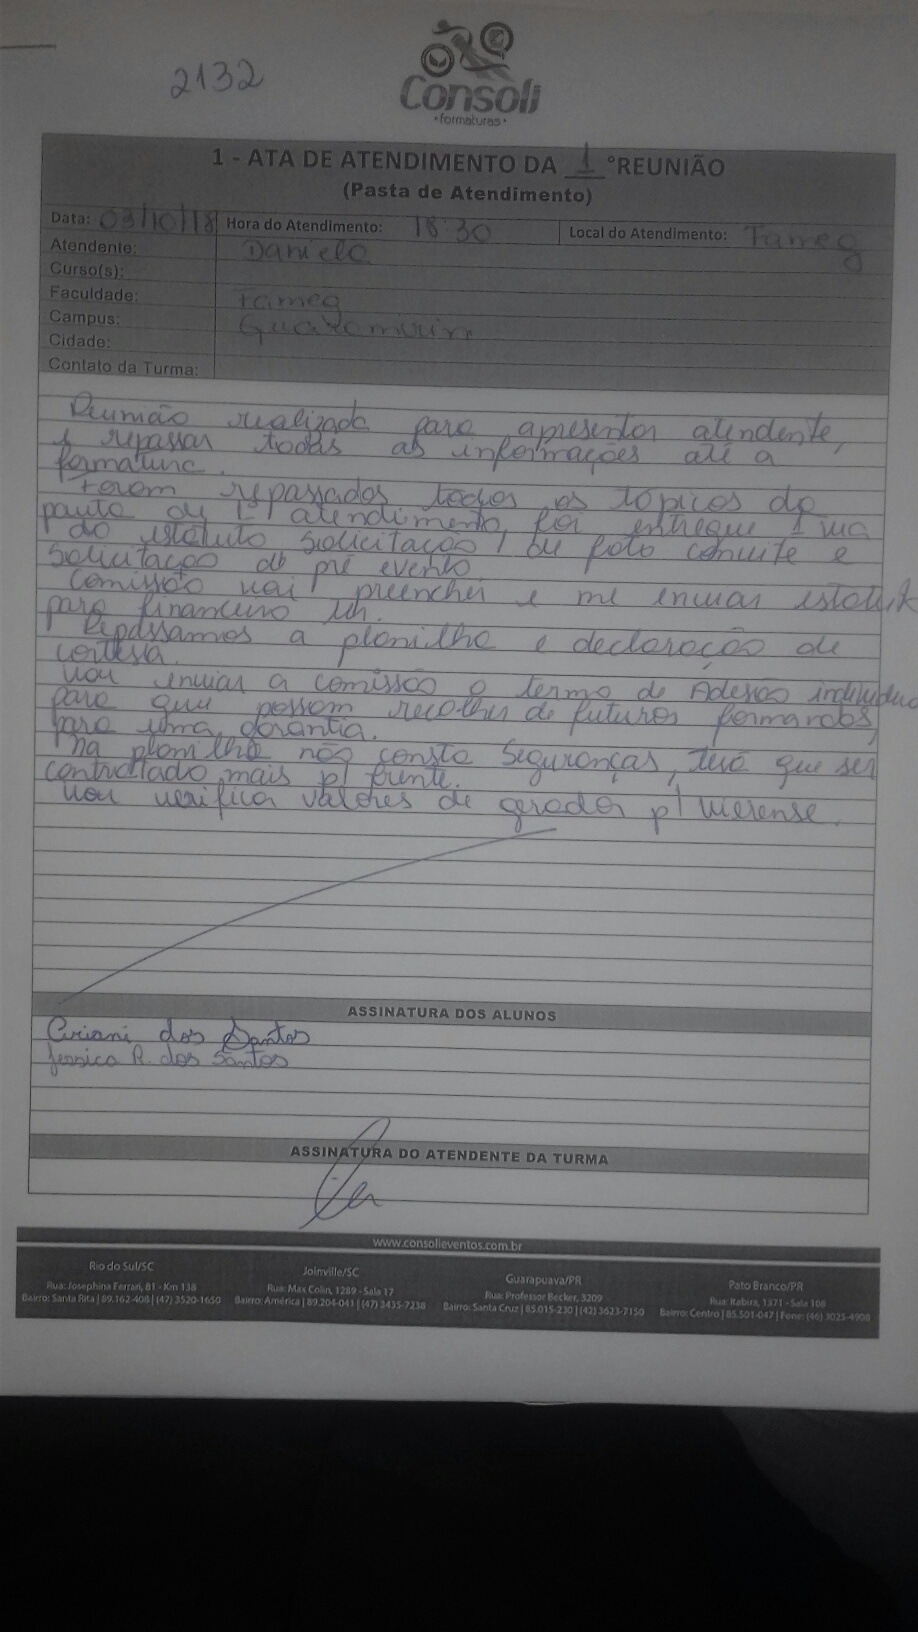 2132
Consoli
•formaturas•
1 - ATA DE ATENDIMENTO DA 1 °REUNIÃO
(Pasta de Atendimento)
Data: 03/10/18 Hora do Atendimento: 18:30 Local do Atendimento: Fameg
Atendente: Daniela
Curso(s):
Faculdade: Fameg
Campus: Guaramirim
Cidade:
Contato da Turma:
Reunião realizada para apresentar atendente,
e repassar todas as informações até a
formatura.
Foram repassados todos os tópicos da
pauta de 1º atendimento, foi entregue 1 via
do estatuto solicitação, de foto convite e
solicitação de pré evento.
Comissão vai preencher e me enviar
para financeiro
Repassamos a planilha e declaração de
cortesia.
Vou enviar a comissão o termo de Adesão individual
para que possam recolher de futuros formandos,
para uma garantia.
Na planilha não consta Seguranças, terá que ser
contratado mais p/ frente.
Vou verificar valores de gerador p/ Vieirense.
ASSINATURA DOS ALUNOS
dos Santos
Jessica R. dos Santos
ASSINATURA DO ATENDENTE DA TURMA
www.consolieventos.com.br
Rio do Sul/SC
Rua: Josephina Ferrari, 81 - Km 138
Bairro: Santa Rita | 89.162-408 | (47) 3520-1650
Joinville/SC
Rua: Max Colin, 1289 - Sala 17
Bairro: América | 89.204-041 | (47) 3435-7238
Guarapuava/PR
Rua: Professor Becker, 3209
Bairro: Santa Cruz | 85.015-230 | (42) 3623-7150
Pato Branco/PR
Rua: Itabira, 1371 - Sala 108
Bairro: Centro | 85.501-047 | Fone: (46) 3025-4908